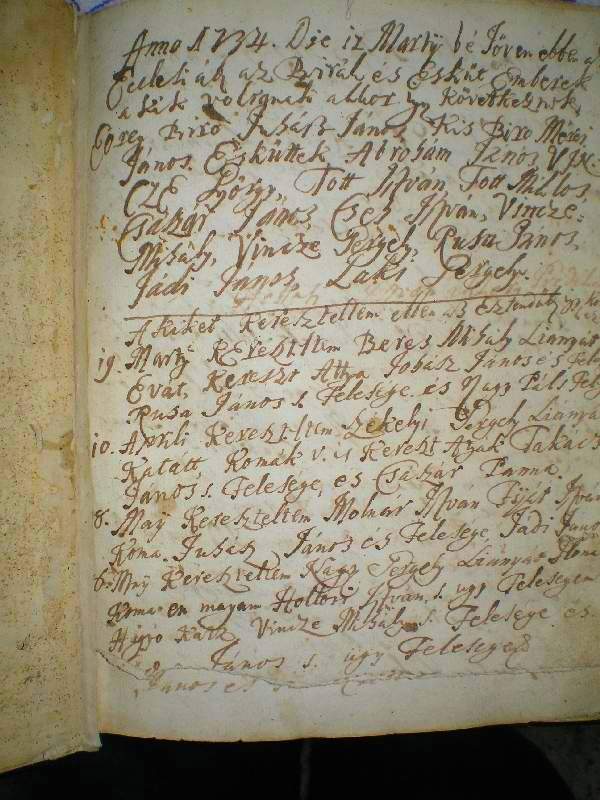 Anno 1734. Die 12 Martÿ bé Jövén ebbe a
Ecclesiáb, az Birák és Esküt Emberek
a kik vóltanak akkor Igy következnek
Öreg Biró Juhász János Kis Biro Mérei
János. Esküttek Abrohám János Vin
cze György, Tott István Tott Miklos,
Császár János, Ges István, Vincze
Mihály, Vincze Gergely, Rusa János,
Jádi János, Laki Gergely.
A kiket Kereszteltem ebben az Esztendőb
19. Martÿ Kereszteltem Beres Mihály Liányát
Évát, Kereszt Attya Johász János és Fele
Rusa János s. Felesege és Nagy Pál s Fele
10. Aprili Kereszteltem Székelyi Gergely Liányá
Katátt Komák v. is Kereszt Atyák Takács
János s. Felesége, és Császár Panna.
8. Maÿ Kereszteltem Molnár Istvan Fiját Istvá
Koma Juhász János es Felesege, Jádi Janos
6. Kereszteltem Nagy Gergely Liányát Ilona
Koma en magam István s. ugy Felesegem
Kata Vincze Mihály s. Felesege es
János s. ugy Felesege
János es